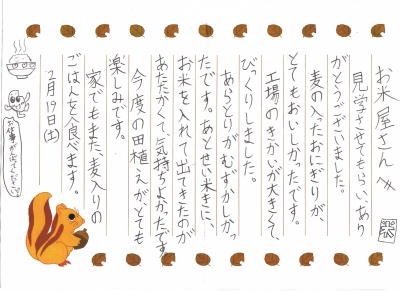 お米屋さんへ
見学させてもらい、あり
がとうございました。
麦の入たおにぎりが、
とてもおいしかったです。
工場のきかいが大きくて、
びっくりしました。
あらとりがむずがしかっ
たです。あとせい米きに、
お米を入れて出てきたのが
あたたかくて、気持ちよかったです。
今度の田植えが、とても
楽しみです。
家でもまた、麦入りの
ごはんを食べます。
2月19日(土)
お仕事がんばってください